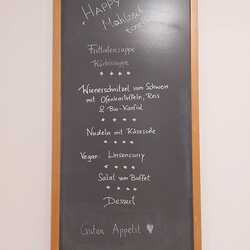 HAPPY
Mahlzeit
Frittatensuppe
Kürbissuppe
Wienerschnitzel vom Schwein
mit Ofenkartoffeln, Reis
& Bio-Karfiol
Nudeln mit Käsesoße
Vegan: Linsencurry
Salat vom Buffet
Dessert
Guten Appetit